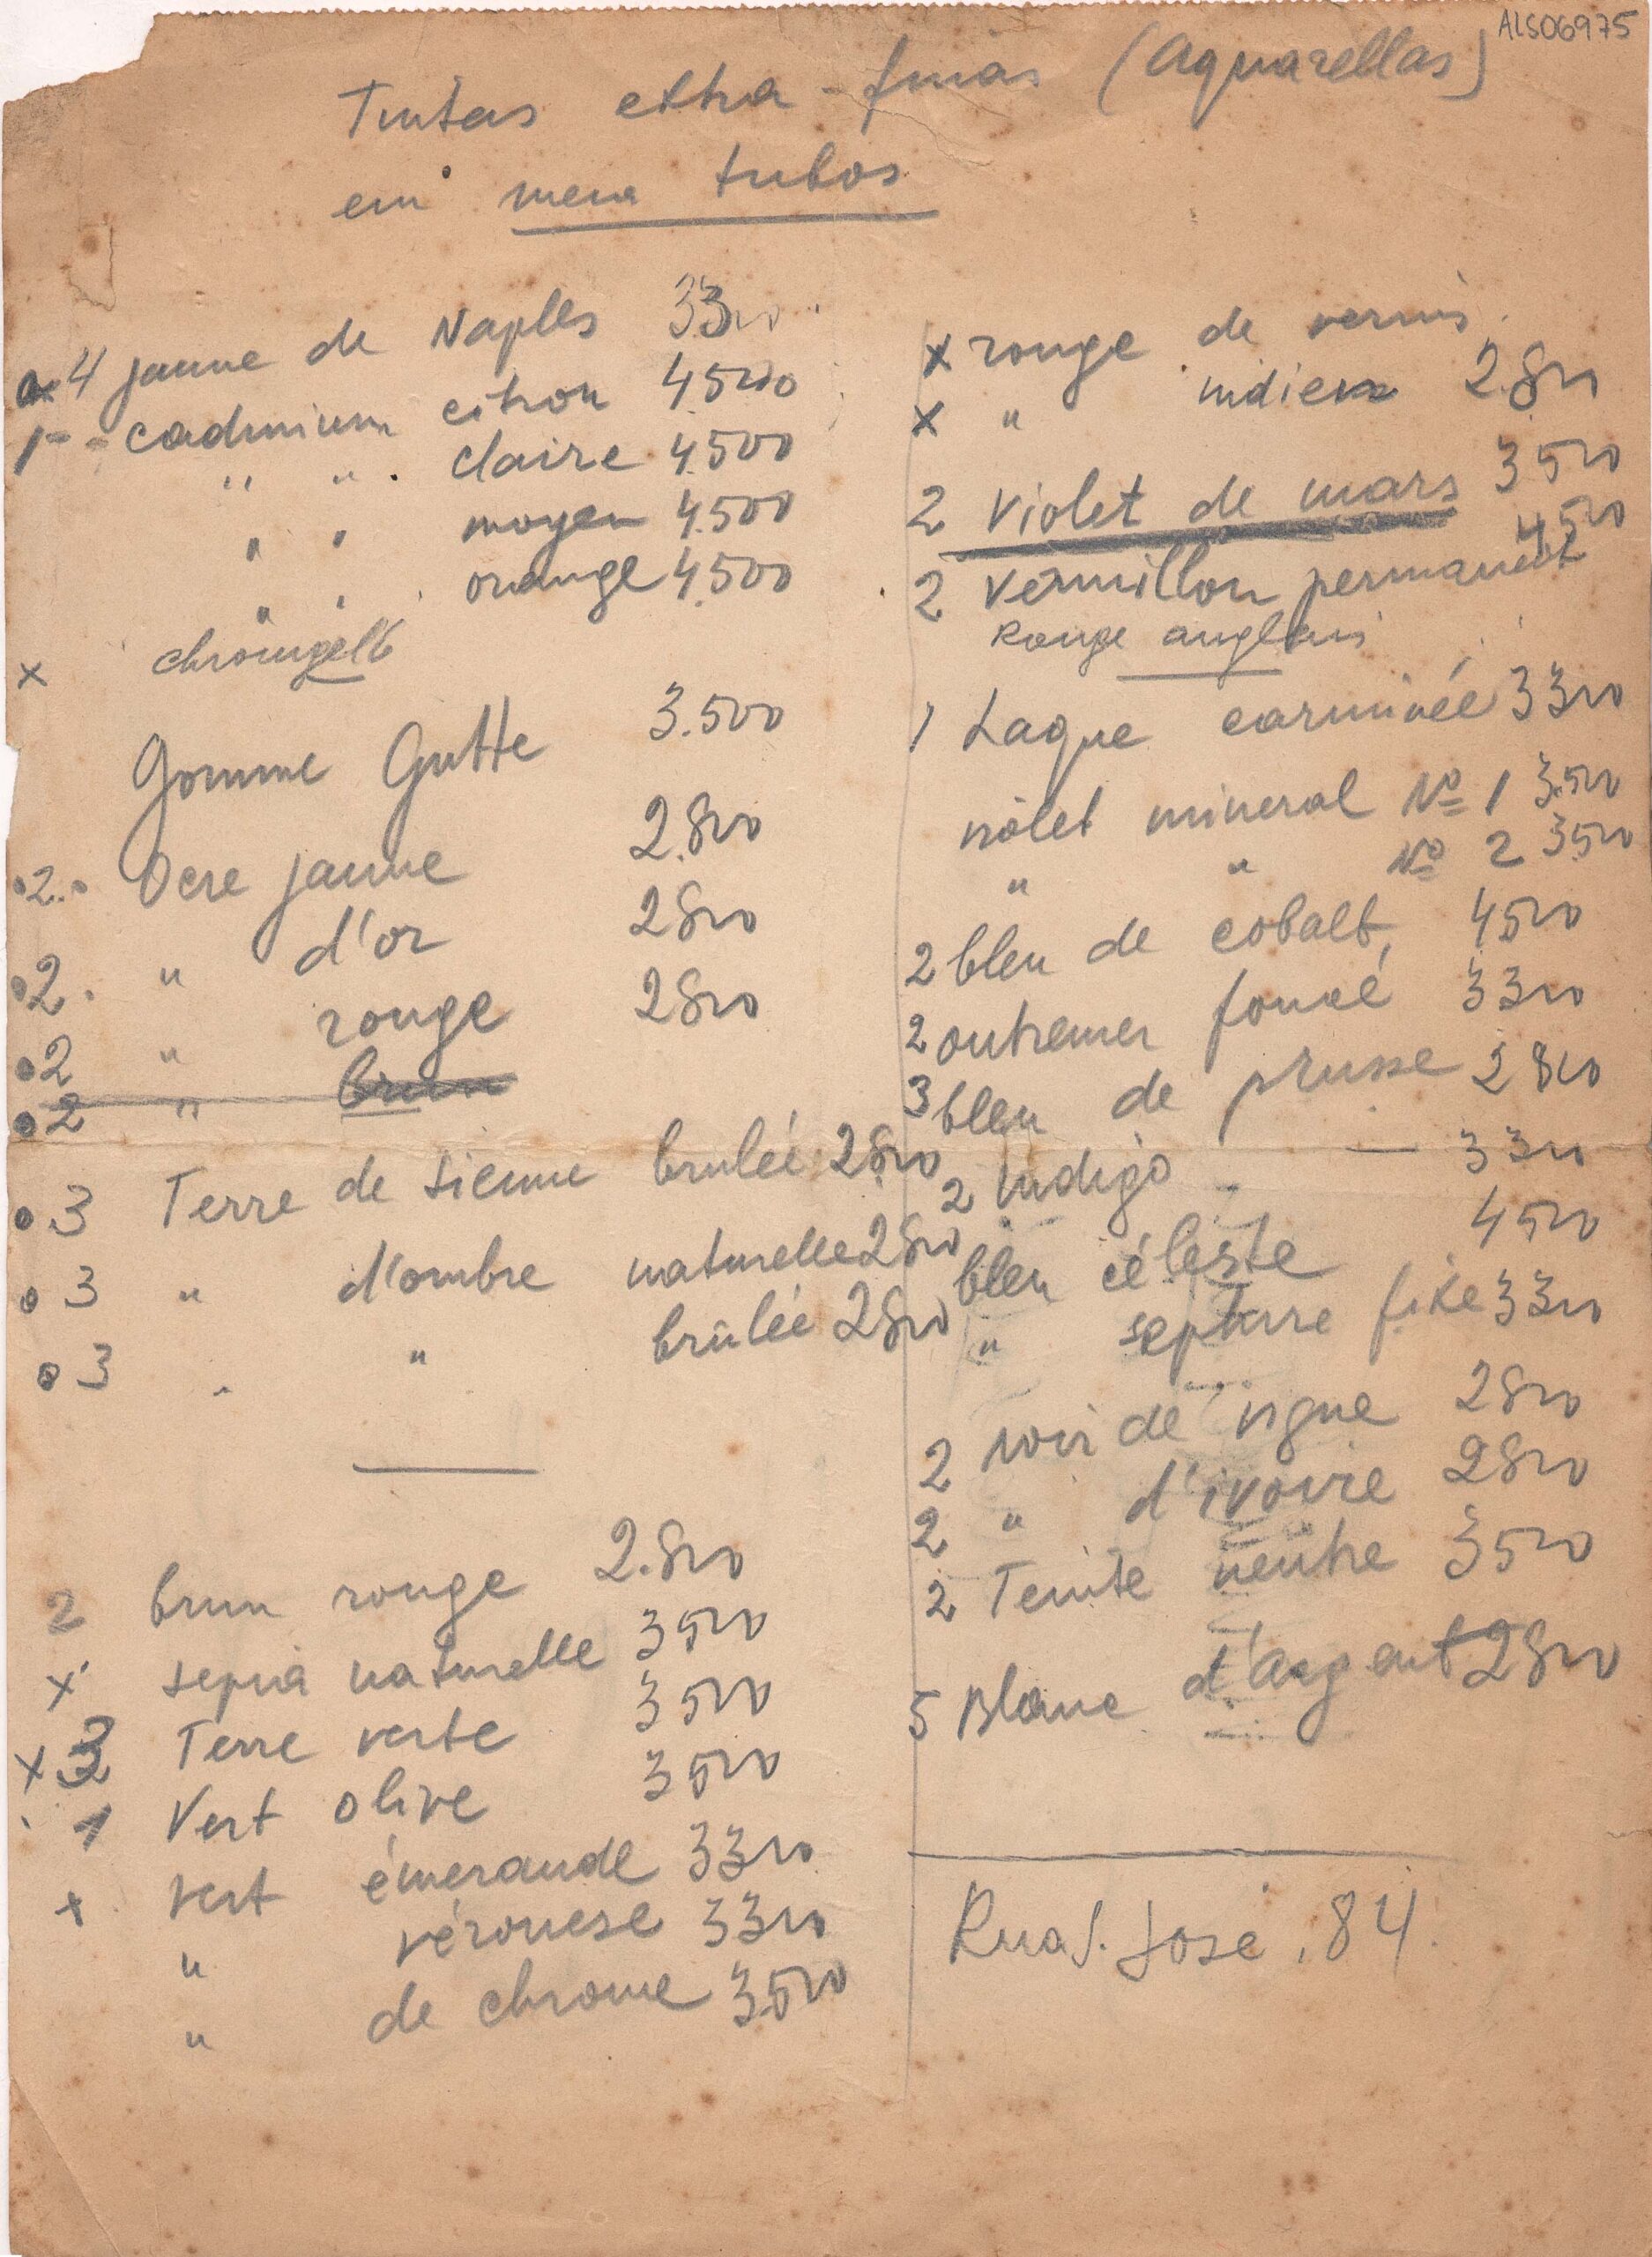 ALS06975
Tintas extra-finas (Aquarellas)
em meia tubos
4 jaune de Naples 3300
1 - cadmium citron 4500
" " claire 4.500
" " moyen 4.500
" " orange 4.500
x chromgelb
Gomme Gutte 3.500
2. Ocre jaune 2.800
2. " d'or 2800
2 " rouge 2800
2 " brun
3 Terre de Sienne brulée 2800
3 " d'ombre naturelle 2800
3 " " brûlée 2800
2 brun rouge 2.800
x sepia naturelle 3500
x 3 Terre verte 3500
1 Vert olive 3500
x vert émeraude 3300
" véronese 3300
" de chrome 3.500
x rouge de
x " indien 2.800
2 violet de mars 3500
2 vermillon permanent 4500
Rouge anglais
1 Laque carminée 3300
violet mineral No 1 3.500
" " No 2 3500
2 bleu de cobalt 4500
2 outremer foncé 3300
3 bleu de prusse 2800
2 Indigo - — 3300
bleu céleste 4500
" fixe 3300
2 noir de vigne 2800
2 " d'ivoire 2800
2 Teinte neutre 3500
5 Blanc d'argent 2800
Rua S. José, 84.